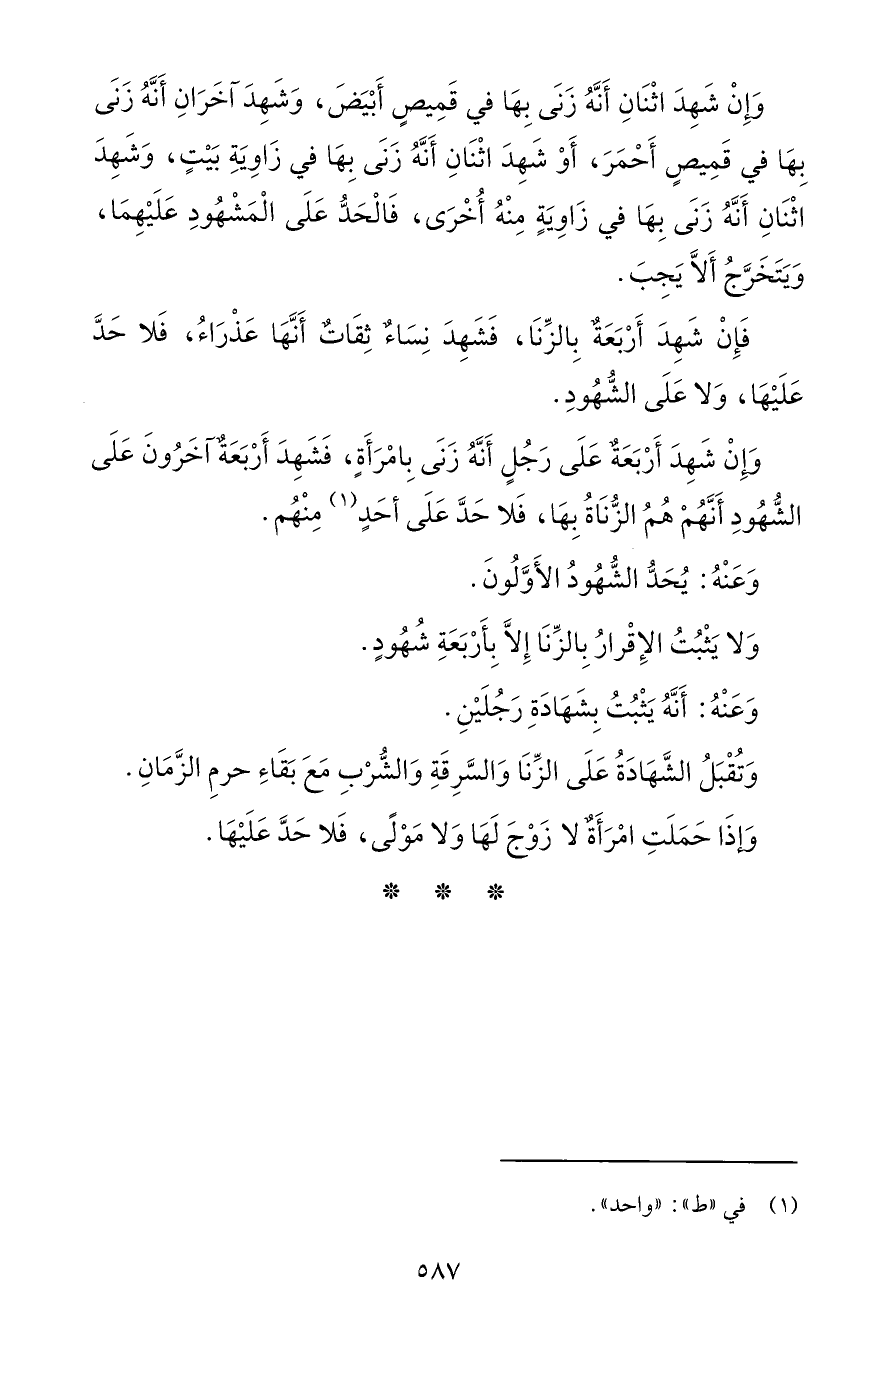 وَإِنْ شَهِدَ اثْنَانِ أَنَّهُ زَنَى بِهَا في قَمِيصٍ أَبْيَضَ، وَشَهِدَ آخَرَانِ أَنَّهُ زَنَى
بِهَا في قَمِيصٍ أَحْمَرَ، أَوْ شَهِدَ اثْنَانِ أَنَّهُ زَنَى بِهَا في زَاوِيَةِ بَيْتٍ، وَشَهِدَ
اثْنَانِ أَنَّهُ زَنَى بِهَا في زَاوِيَةٍ مِنْهُ أُخْرَى، فَالْحَدُّ عَلَى الْمَشْهُودِ عَلَيْهِمَا،
وَيَتَخَرَّجُ أَلاَّ يَجِبَ.
فَإِنْ شَهِدَ أَرْبَعَةٌ بِالزِّنَا، فَشَهِدَ نِسَاءٌ ثِقَاتٌ أَنَّهَا عَذْرَاءُ، فَلا حَدَّ
عَلَيْهَا، وَلا عَلَى الشُّهُودِ.
وَإِنْ شَهِدَ أَرْبَعَةٌ عَلَى رَجُلٍ أَنَّهُ زَنَى بِامْرَأَةٍ، فَشَهِدَ أَرْبَعَةٌ آخَرُونَ عَلَى
الشُّهُودِ أَنَّهُمْ هُمُ الزُّنَاةُ بِهَا، فَلا حَدَّ عَلَى أحَدٍ(١) مِنْهُم.
وَعَنْهُ: يُحَدُّ الشُّهُودُ الأَوَّلُونَ.
وَلا يَثْبُتُ الإِقْرارُ بِالزِّنَا إِلاَّ بِأَرْبَعَةِ شُهُودٍ.
وَعَنْهُ: أَنَّهُ يَثْبُتُ بِشَهَادَةِ رَجُلَيْنِ.
وَتُقْبَلُ الشَّهَادَةُ عَلَى الزِّنَا وَالسَّرِقَةِ وَالشُّرْبِ مَعَ بَقَاءِ حرمِ الزَّمَانِ.
وَإِذَا حَمَلَتِ امْرَأَةٌ لا زَوْجَ لَهَا وَلا مَوْلًى، فَلا حَدَّ عَلَيْهَا.
* * *
(١) في «ط»: «واحد».
٥٨٧